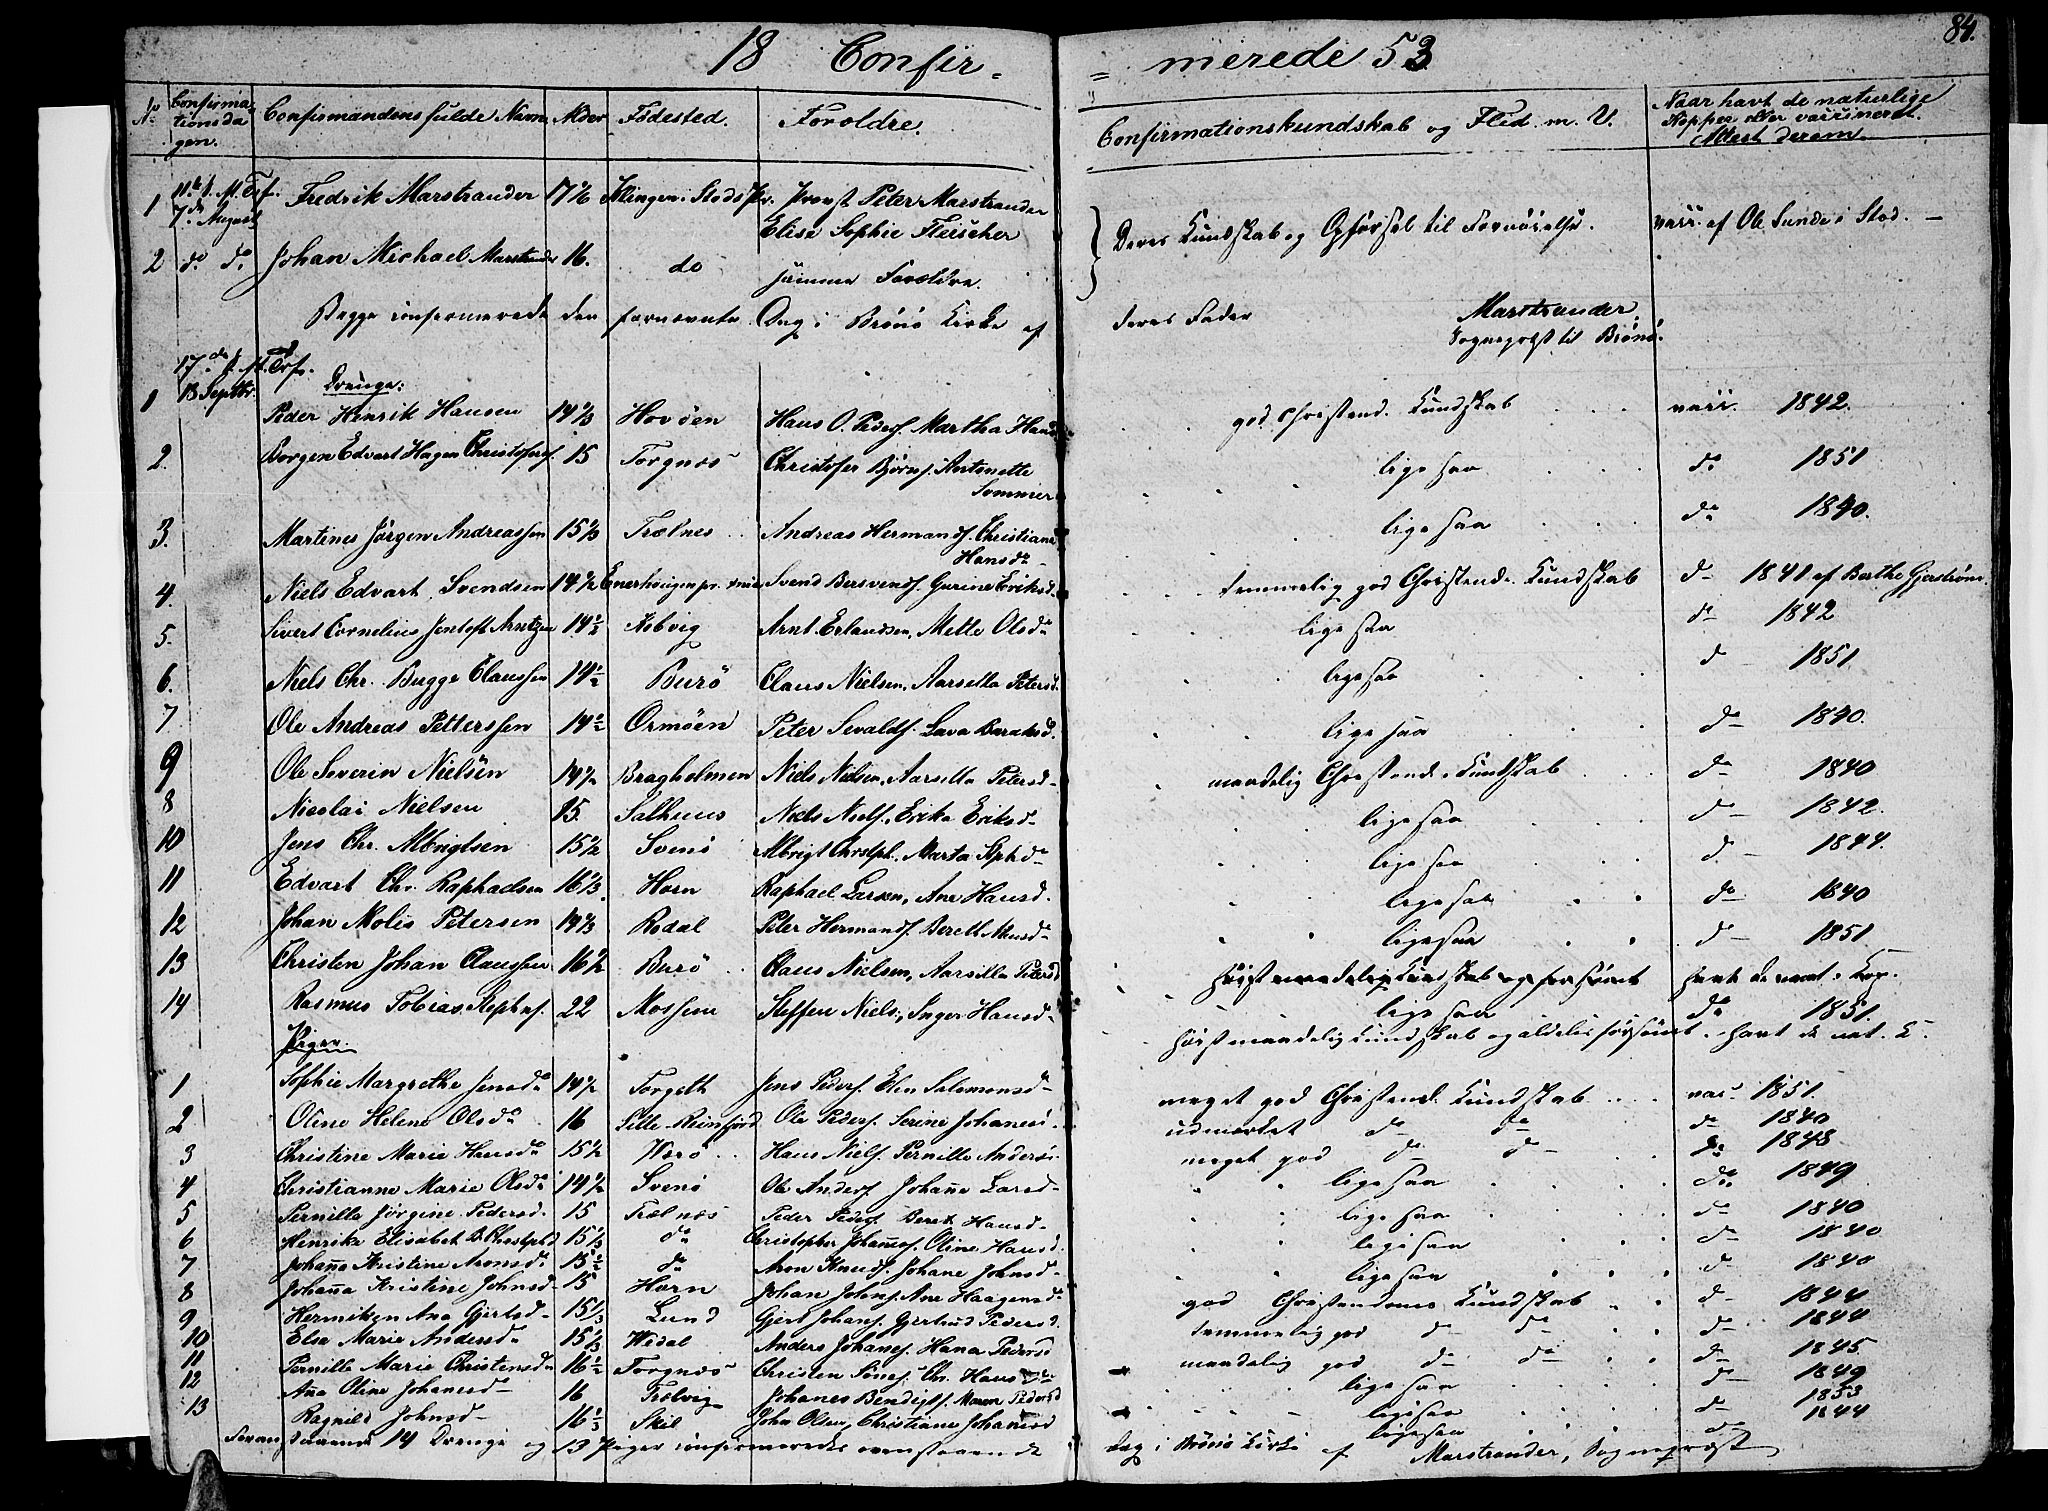 84.
18 Confir= = merede 53
No Confirma-tionsda-gen. Confirmandens fulde Navn Alder Födested. Forældre. Confirmationskundskab og Flid m. V. Naar havt de naturlige Kopper eller vaccineret. Attest derom
1 7de August Fredrik Marstrander 17 Provst Peter Marstrander
Elise Sophie Fleischer Deres Kundskab og Opførsel til Fornöielse. vacc. af Ole Sunde i Stod. —
2 do do Johan Michael Marstrander 16. do samme Forældre.
Begge confirmerede den fornævnte Dag i Brönö Kirke af deres Fader Marstrander
Sogneprost til Brönö.
Drenge:
1 18 Septbr. Peder Henrik Hansen 14 1/3 Hovöen Hans O. Peders. Martha Hansd god Christend. Kundskab vacc. 1842.
2. Borgen Edvart Hagen Christofers. 15 Torgnæs Christofer Björns. Antonette
Sommer ligesaa do 1851
3. Martines Jörgen Andreassen 15 1/3 Trælnes Andreas Hermands. Christiane
Hansda ligesaa do 1840.
4. Niels Edvart Svendsen 14 1/2 Svend Bersvends. Gurine Eriksd. temmelig god Christend. Kundskab do 1841 af Berthe Gjerström
5. Sivert Cornelius Jentoft Arntzen 14 1/2 Kobvig Arnt Erlandsen, Mette Olsda ligesaa do 1842
6. Niels Chr. Bugge Claussen 14 1/2 Burö Claus Nielsen, Aarsella Petersd. ligesaa d 1851
7 Ole Andreas Petterssen 14 1/2 Ormöen Peter Sevalds. Lava Baraksd. ligesaa do 1840.
9 Ole Severin Nielsen 14 1/2 Bragholmen Niels Nielsen, Aarsella Petersd. maadelig Christend. Kundskab do 1840
8 Nicolai Nielsen 15. Salhuus Niels Niels. Erika Eriksd. ligesaa do 1842.
10 Jens Chr. Albrigtsen 15 1/2 Svenö Albrigt Chrstph. Marta Stphda ligesaa d. 1844.
11 Edvart Chr. Raphaelsen 16 1/3 Horn Raphael Larsen, Ane Hansd. ligesaa do 1840
12 Johan Molis Petersen 14 1/3 Rodal Peter Hermands. Berett ligesaa do 1851
13 Christen Johan Claussen 16 1/2 Burö Claus Nielsen, Aarsilla Petersd höist maadelig Kundskab og forsömt havt de nat. Kop.
14 Rasmus Tobias Stephns. 22 Mossem Steffen Niels., Inger Hansd. ligesaa do 1851.
Piger. höist maadelig Kundskab og aldeles forsömt. havt de nat. K.
1 Sophie Margrethe Jensda 14 1/2 Torgeth Jens Peders. Elen Salomonsd. meget god Christend. Kundskab vac. 1851.
2 Oline Helene Olsda 16 Lille Reinfjord Ole Peders. Serine Johanesd. udmærket do do do 1840
3 Christine Marie Hansda 15 1/2 Værö Hans Niels. Pernille Andersd. meget god do do do 1848
4 Christianne Marie Olsda 14 1/2 Svenö Ole Anders. Johane Larsd. ligesaa do 1849
5 Pernille Jörgine Pedersd. 15 Trælnæs Peder Peders. Beret Hansd. ligesaa do 1840
6 Henrike Elisabet B. Chrstphd 15 1/3 do Christopher Johanes. Oline Hansd. ligesaa do 1840
7 Johana Kristine Aronsda 15 1/2 do Aron Knuds. Johane Johnsd. ligesaa d 1840
8 Johana Kristine Johnsd. 15 Horn Johan Johns. Ane Haagensd. god Christendoms Kundskab d 1844
9 Hermiken Ana Gjertsd. 15 1/3 Lund Gjert Johans. Gjertrud Pedersd. temmelig god do do do 1844
10 Else Marie Andersda 15 1/3 Wedal Anders Johanes. Hana Pedersd maadelig god do do do 1845
11 Pernille Marie Christensda 16 1/2 Torgnæs Christen Chr. Hansda ligesaa do 1849
12 Ana Oline Johansd. 16 Trælvig Johanes Bendigts. Maren Pedersd ligesaa do 1853
13 Ragnild Johnsd. 16 1/3 Skil John Olsen, Christiane Johanesd ligesaa do 1844
14 Drenge og 13 Piger confirmeredes ovenstaaende Dag i Brönö Kirke af Marstrander, Sogneprost